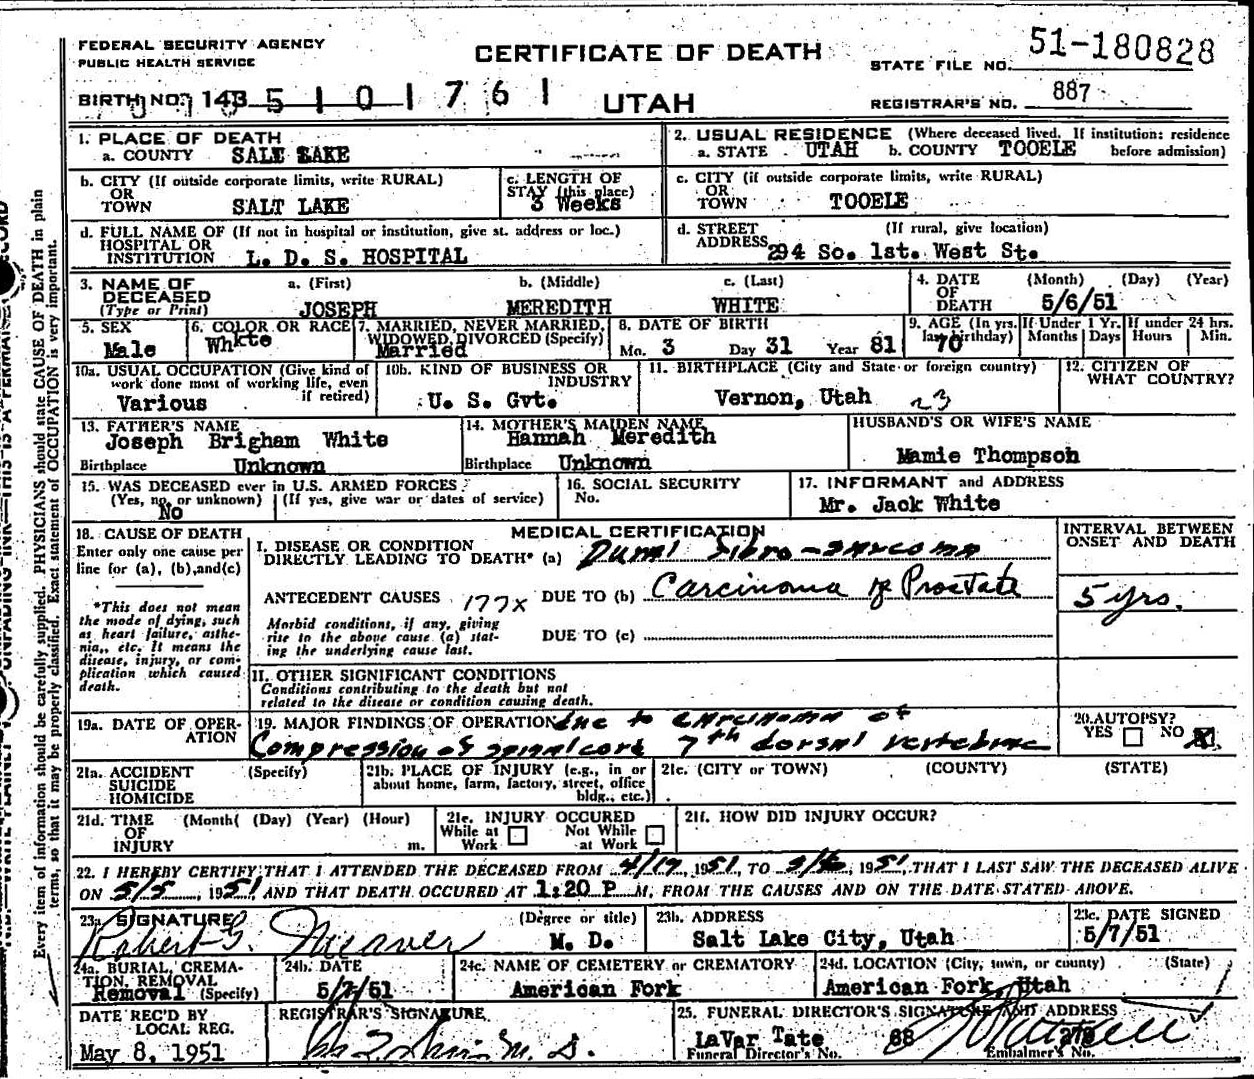 FEDERAL SECURITY AGENCY
PUBLIC HEALTH SERVICE
CERTIFICATE OF DEATH
STATE FILE NO. 51-180828
BIRTH NO. 143 5 1 0 1 7 6 1
UTAH
REGISTRAR'S NO. 887
1. PLACE OF DEATH
a. COUNTY SALT LAKE
2. USUAL RESIDENCE (Where deceased lived. If institution: residence before admission)
a. STATE UTAH b. COUNTY TOOELE
b. CITY (If outside corporate limits, write RURAL)
OR
TOWN SALT LAKE
c. LENGTH OF
STAY (this place)
3 Weeks
c. CITY (if outside corporate limits, write RURAL)
OR
TOWN TOOELE
d. FULL NAME OF (If not in hospital or institution, give st. address or loc.)
HOSPITAL OR
INSTITUTION L. D. S. HOSPITAL
d. STREET (If rural, give location)
ADDRESS 294 So. 1st. West St.
3. NAME OF
DECEASED
(Type or Print)
a. (First) b. (Middle) c. (Last)
JOSEPH MEREDITH WHITE
4. DATE
OF
DEATH
(Month) (Day) (Year)
5/6/51
5. SEX
Male
6. COLOR OR RACE
Whkte
7. MARRIED, NEVER MARRIED,
WIDOWED, DIVORCED (Specify)
Married
8. DATE OF BIRTH
Mo. 3 Day 31 Year 81
9. AGE (In yrs.
last birthday)
70
If Under 1 Yr.
Months Days
If under 24 hrs.
Hours Min.
10a. USUAL OCCUPATION (Give kind of
work done most of working life, even
if retired)
Various
10b. KIND OF BUSINESS OR
INDUSTRY
U. S. Gvt.
11. BIRTHPLACE (City and State or foreign country)
Vernon, Utah 23
12. CITIZEN OF
WHAT COUNTRY?
13. FATHER'S NAME
Joseph Brigham White
Birthplace Unknown
14. MOTHER'S MAIDEN NAME
Hannah Meredith
Birthplace Unknown
HUSBAND'S OR WIFE'S NAME
Mamie Thompson
15. WAS DECEASED ever in U.S. ARMED FORCES?
(Yes, no, or unknown) (If yes, give war or dates of service)
No
16. SOCIAL SECURITY
No.
17. INFORMANT and ADDRESS
Mr. Jack White
18. CAUSE OF DEATH
Enter only one cause per
line for (a), (b), and (c)
*This does not mean
the mode of dying, such
as heart failure, asthe-
nia, etc. It means the
disease, injury, or com-
plication which caused
death.
MEDICAL CERTIFICATION
I. DISEASE OR CONDITION
DIRECTLY LEADING TO DEATH* (a) Dural Fibro-sarcoma
ANTECEDENT CAUSES 177X DUE TO (b) Carcinoma of Prostate
Morbid conditions, if any, giving
rise to the above cause (a) stat-
ing the underlying cause last.
DUE TO (c)
II. OTHER SIGNIFICANT CONDITIONS
Conditions contributing to the death but not
related to the disease or condition causing death.
INTERVAL BETWEEN
ONSET AND DEATH
5 yrs.
19a. DATE OF OPER-
ATION
19. MAJOR FINDINGS OF OPERATION due to carcinoma of
Compression of spinal cord 7th dorsal vertebrae
20. AUTOPSY?
YES NO X
21a. ACCIDENT (Specify)
SUICIDE
HOMICIDE
21b. PLACE OF INJURY (e.g., in or
about home, farm, factory, street, office
bldg., etc.)
21c. (CITY or TOWN) (COUNTY) (STATE)
21d. TIME (Month( (Day) (Year) (Hour)
OF
INJURY m.
21e. INJURY OCCURED
While at Work Not While at Work
21f. HOW DID INJURY OCCUR?
22. I HEREBY CERTIFY THAT I ATTENDED THE DECEASED FROM 4/17, 1951, TO 5/6, 1951, THAT I LAST SAW THE DECEASED ALIVE
ON 5/5, 1951 AND THAT DEATH OCCURED AT 1:20 P M, FROM THE CAUSES AND ON THE DATE STATED ABOVE.
23a. SIGNATURE
Robert G. Weaver
(Degree or title)
M. D.
23b. ADDRESS
Salt Lake City, Utah
23c. DATE SIGNED
5/7/51
24a. BURIAL, CREMA-
TION, REMOVAL
Removal (Specify)
24b. DATE
5/7/51
24c. NAME OF CEMETERY or CREMATORY
American Fork
24d. LOCATION (City, town, or county) (State)
American Fork, Utah
DATE REC'D BY
LOCAL REG.
May 8, 1951
REGISTRAR'S SIGNATURE
M. D.
25. FUNERAL DIRECTOR'S SIGNATURE AND ADDRESS
LaVar Tate 88 278
Funeral Director's No. Embalmer's No.
Every item of information should be carefully supplied. PHYSICIANS should state CAUSE OF DEATH in plain
terms, so that it may be properly classified. Exact statement of OCCUPATION is very important.